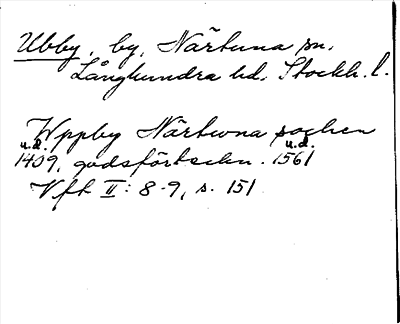 Ubby, by, Närtuna sn,
Långhundra hd, Stockh. l.
Wppby Närtwna sochen
u.d. u.d.
1409, godsförteckn. 1561
Vft II: 8-9, s. 151